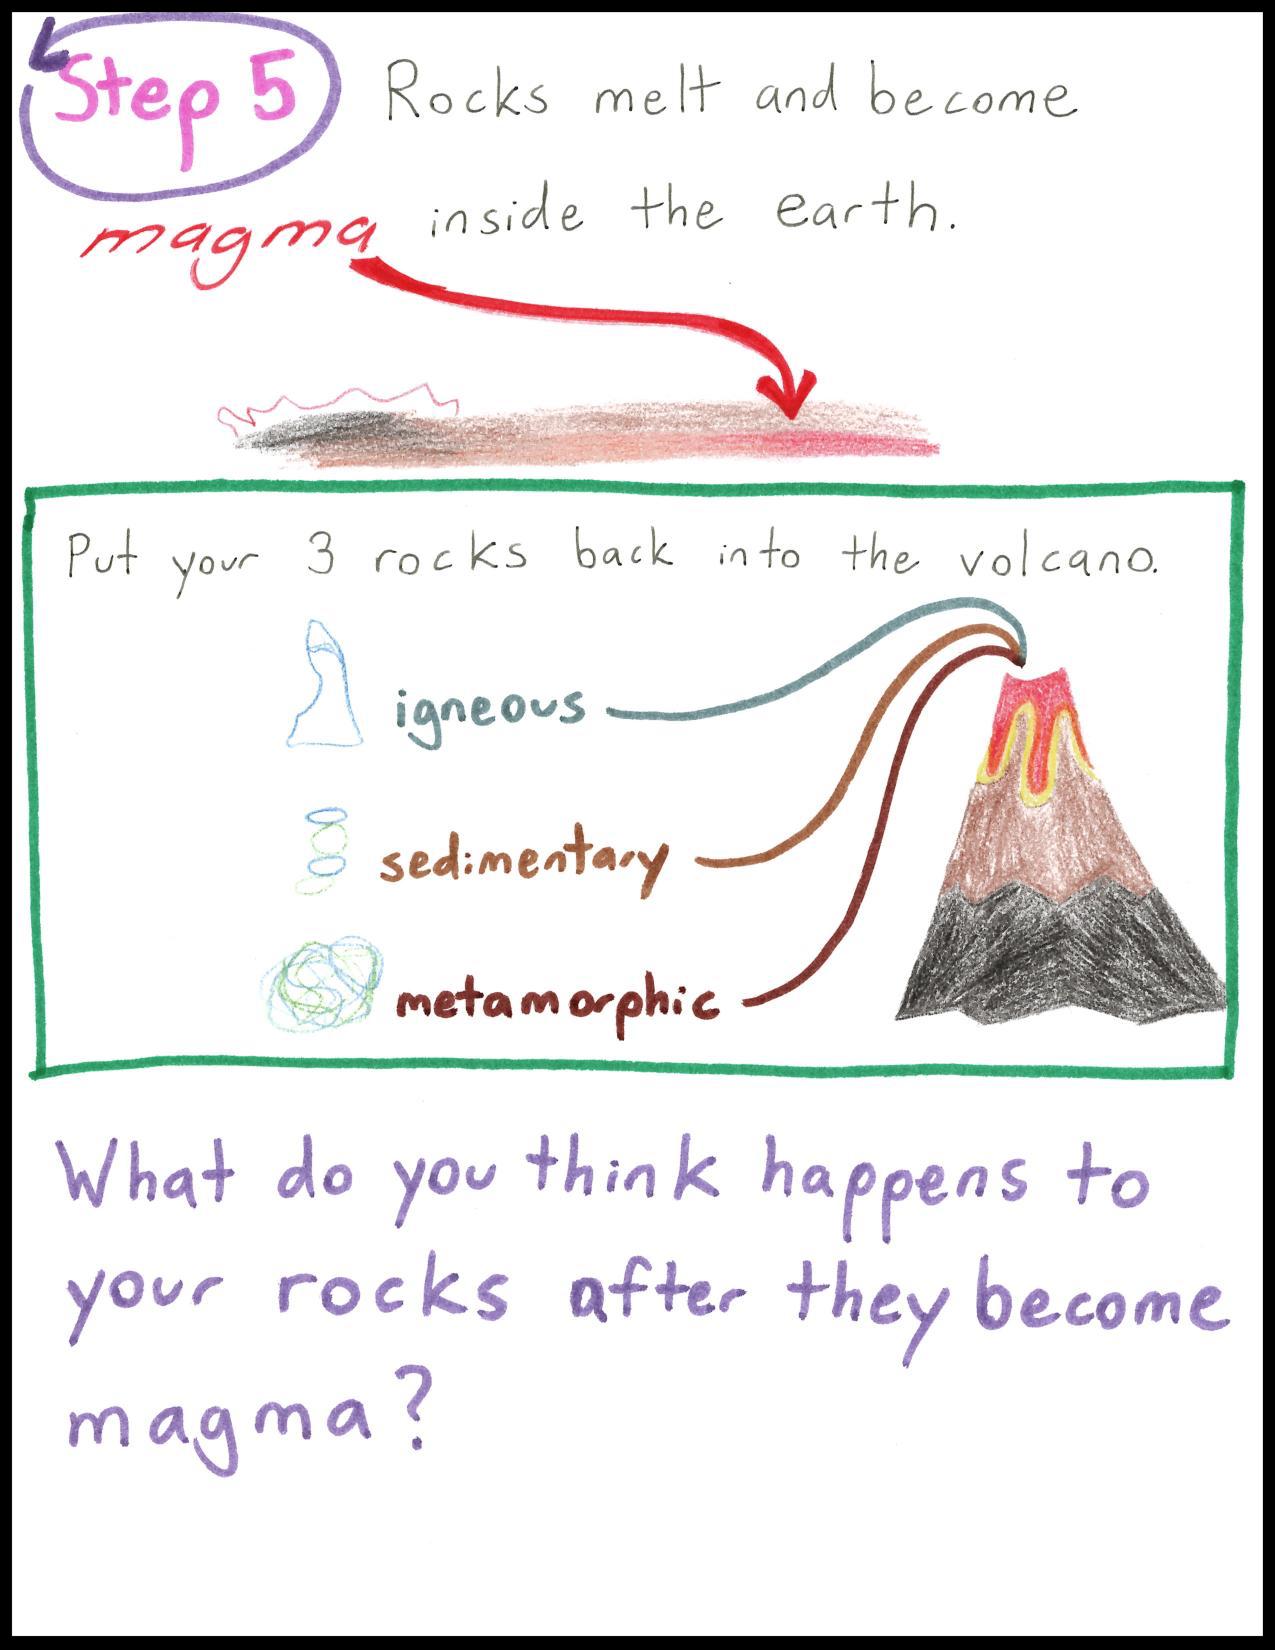 Step 5 Rocks melt and become
magma inside the earth.
Put your 3 rocks back into the volcano.
igneous
sedimentary
metamorphic
What do you think happens to
your rocks after they become
magma?